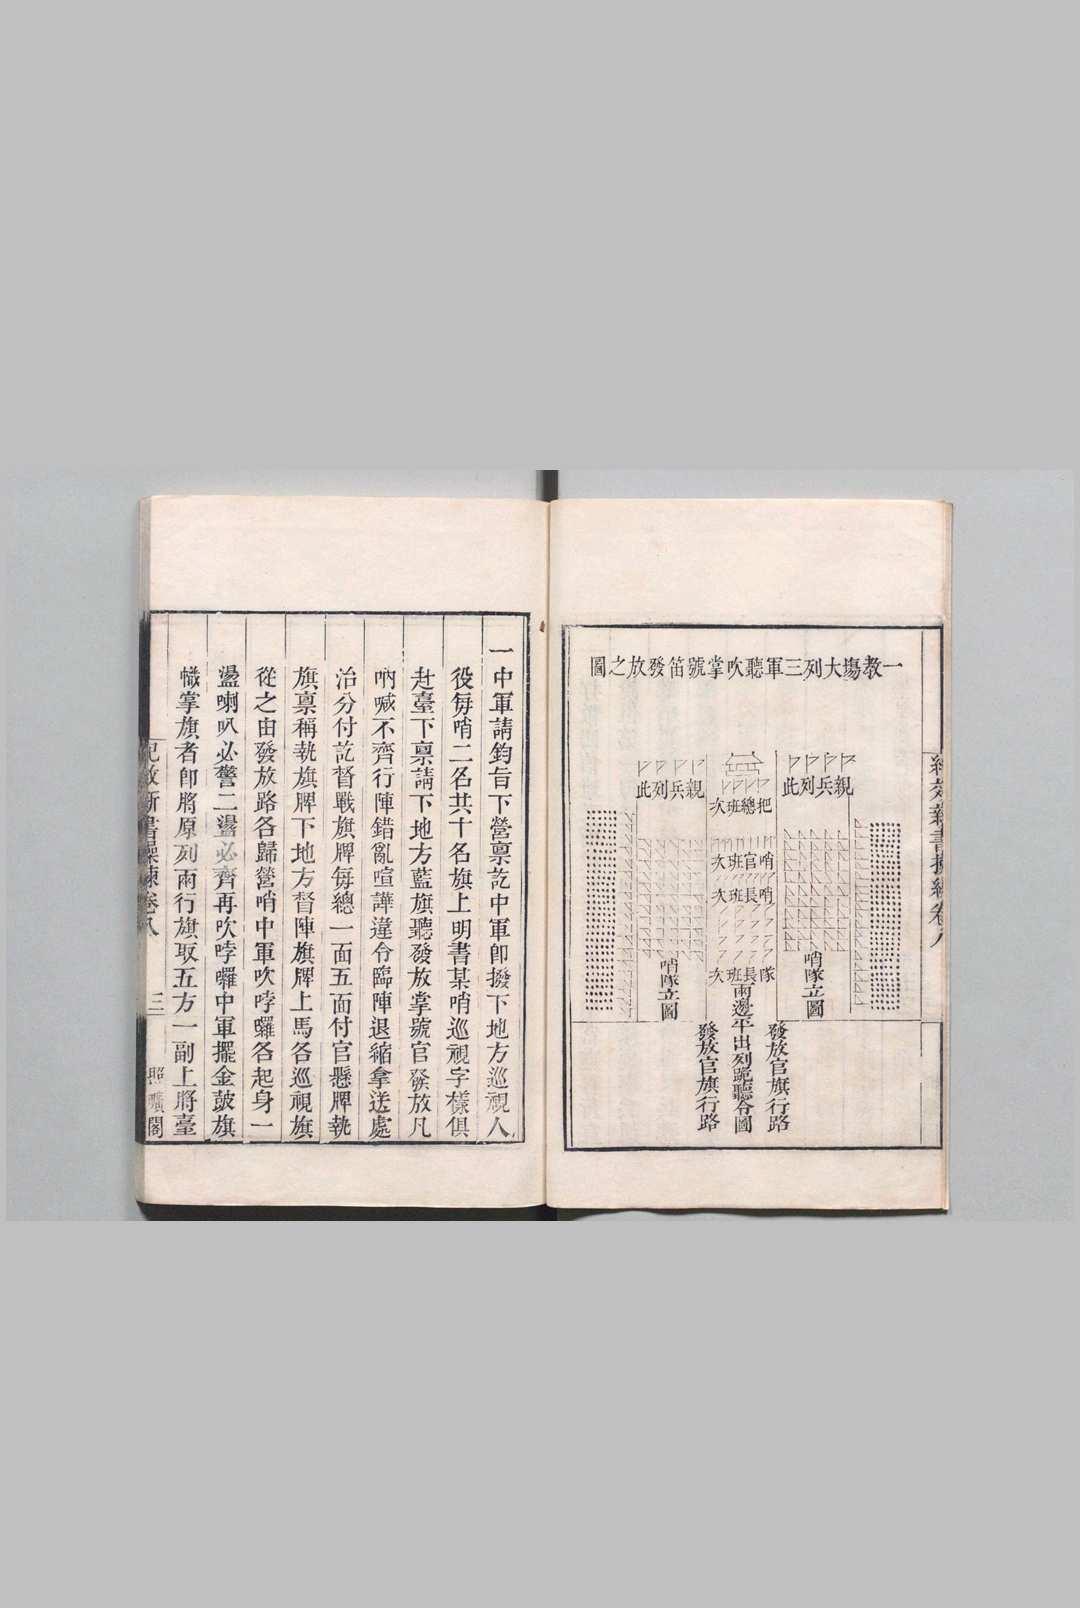 一教塲大列三軍聽吹掌號笛發放之圖
親兵列此
把總班次
親兵列此
哨官班次
哨長班次
隊長班次
哨隊立圖
兩邊平出列跪聽令圖
哨隊立圖
發放官旗行路
發放官旗行路
一中軍請鈞旨下營稟訖中軍卽撥下地方巡視人
役每哨二名共十名旗上明書某哨巡視字樣俱
赴臺下稟請下地方藍旗聽發放掌號官發放凡
吶喊不齊行陣錯亂喧譁違令臨陣退縮拿送處
治分付訖督戰旗牌每總一面五面付官懸牌執
旗稟稱執旗牌下地方督陣旗牌上馬各巡視旗
從之由發放路各歸營哨中軍吹哱囉各起身一
盪喇叭必警二盪必齊再吹哱囉中軍擺金鼓旗
幟掌旗者卽將原列兩行旗取五方一副上將臺
紀效新書操練卷八
三
照曠閣